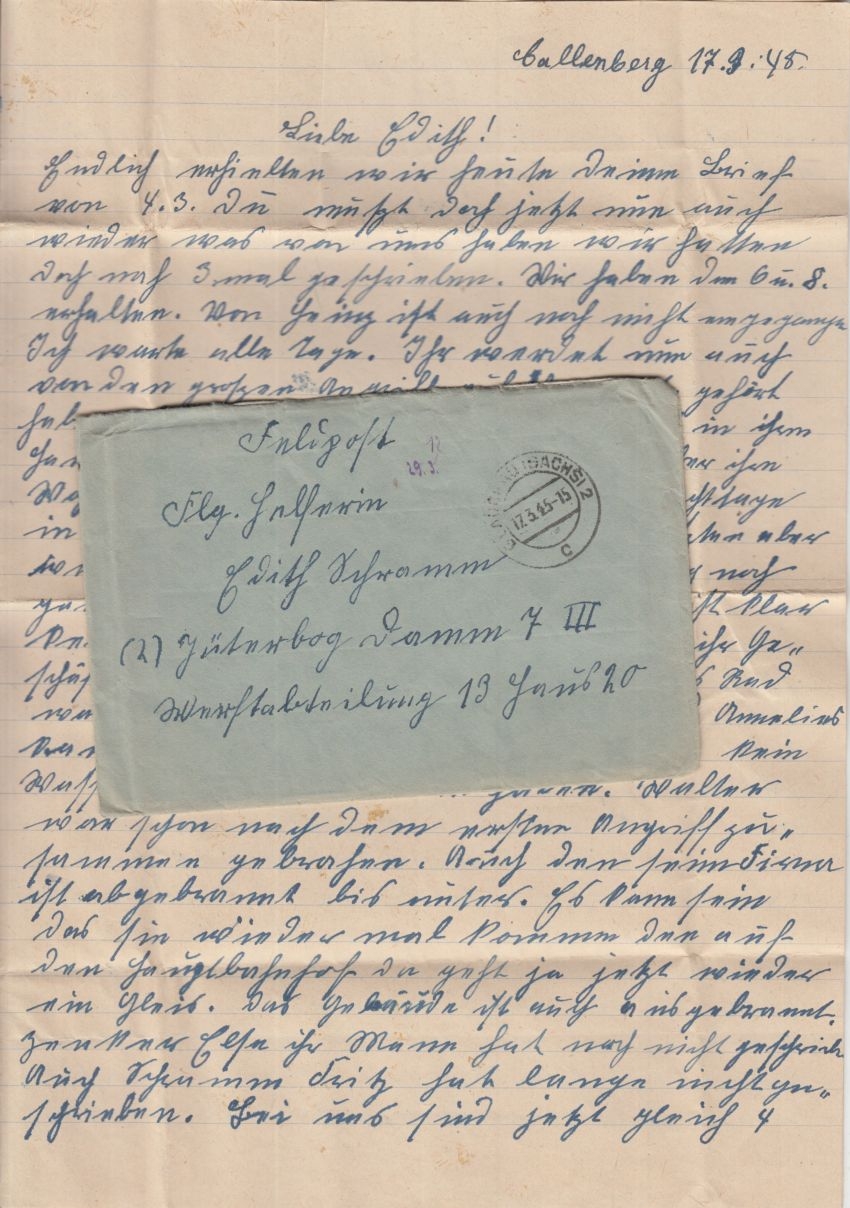 Callenberg 17.3.45.
Liebe Edith!
Endlich erhielten wir heute deinen Brief
von 4.3. Du mußt doch jetzt nun auch
wieder was von uns haben wir hatten
doch noch 3 mal geschrieben. Wir haben den 6 u. 8.
erhalten. Von Heinz ist auch noch nicht eingegangen
Ich warte alle Tage. Ihr werdet nun auch
von den großen Angriff auf gehört
hab in ihrem
ihre
in aber
noch
ist klar
ihr Ge„
schäf Rad
wa Annelies
kein
Wass haben. Walter
war schon nach dem ersten Angriff zu„
sammen gebrochen. Auch den sein Firma
ist abgebrannt bis unter. Es kann sein
das sie wieder mal kommen den auf
den Hauptbahnhof da geht ja jetzt wieder
ein Gleis. Das Gebäude ist auch ausgebrannt.
Zenker Else ihr Mann hat noch nicht geschrieb
Auch Schramm Fritz hat lange nicht ge„
schrieben. Bei uns sind jetzt gleich 4
Feldpost
12
29.3.
Flg. Helferin
Edith Schramm
(2) Jüterbog Damm 7 III
Werftabteilung 13 Haus 20
(SACHS) 2
17.3.45-15
c